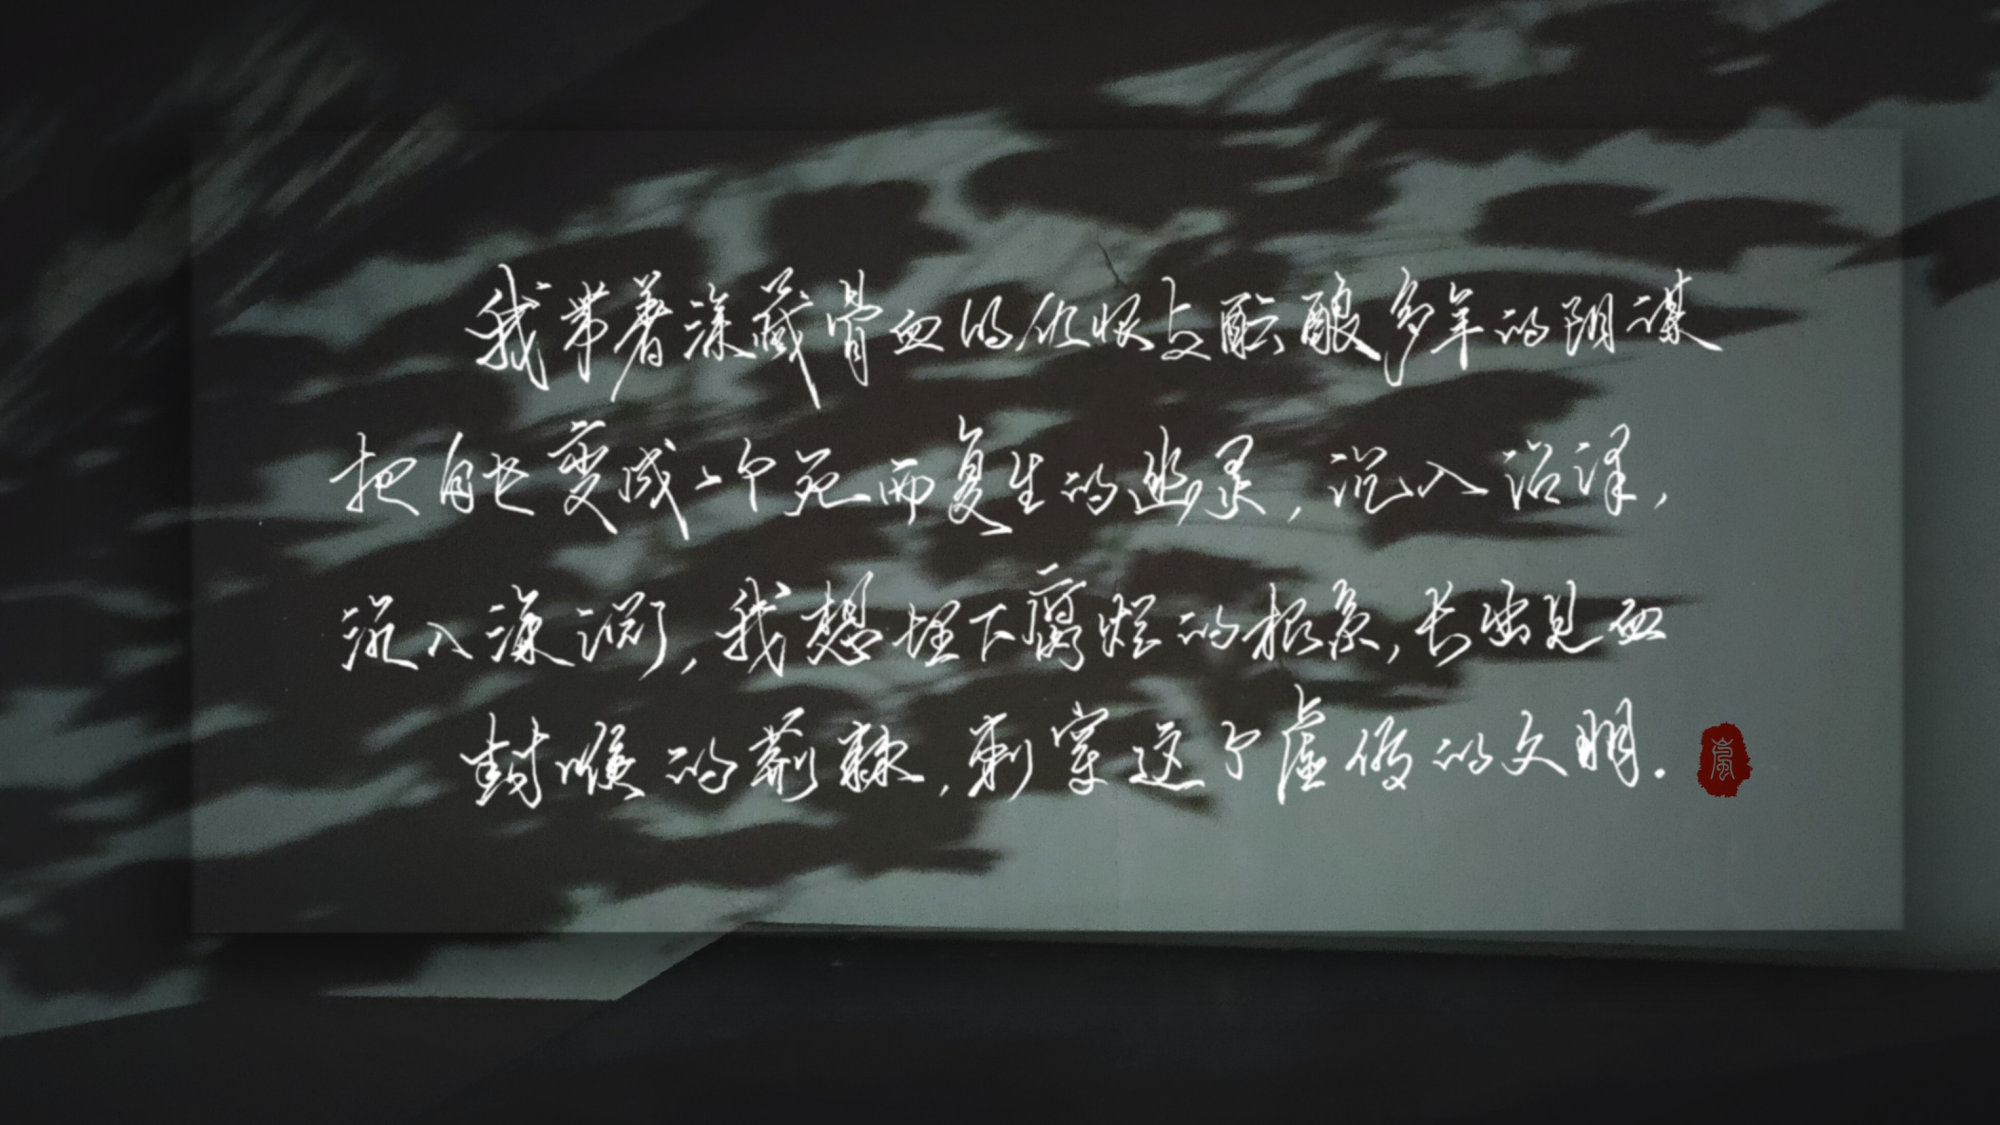 我带着深藏骨血的仇恨与酝酿多年的阴谋
把自己变成一个死而复生的幽灵，沉入沼泽，
沉入深渊，我想埋下腐烂的根系，长出见血
封喉的荆棘，刺穿这个虚假的文明.